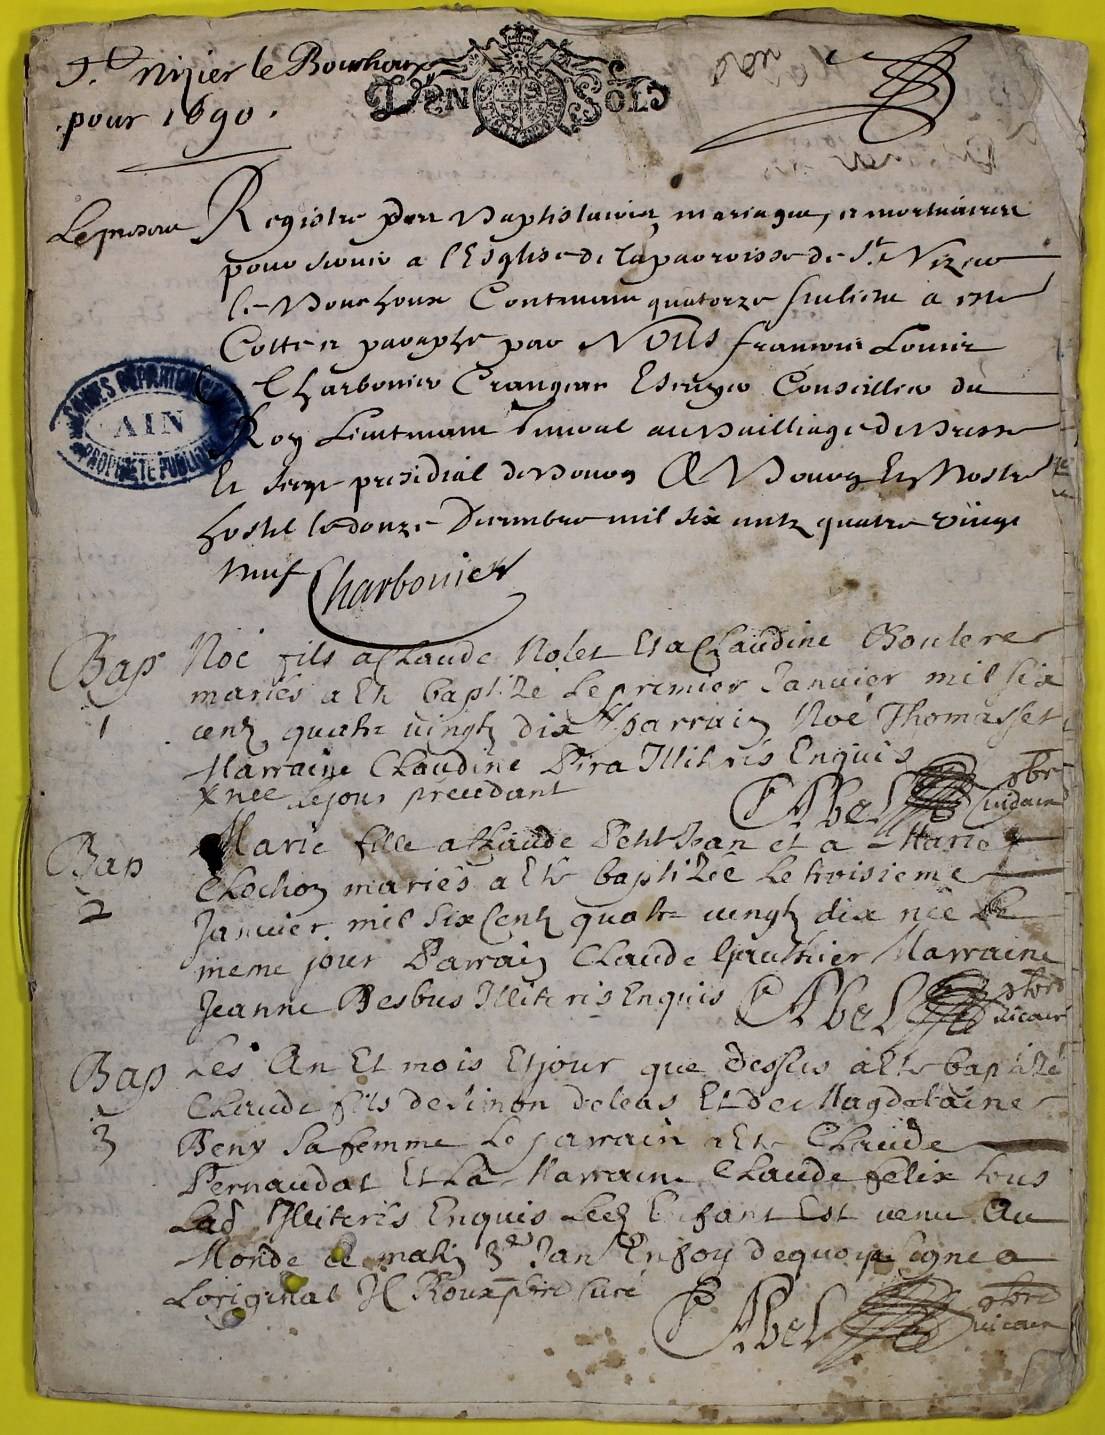 St. Nizier le Bouchoux
pour 1690.
D'EN SOLS
Le present Registre pour Baptistaires mariages, et mortuaires
pour servir a l'Esglise de la parroisse de St. Nizier
le Bouchoux Contenant quatorze feulietz a esté
Cotté et paraphé par Nous francois Louis
Charbonier Crangeac Escuyer Conseiller du
Roy Lieutenant general au Bailliage de Bresse
Et siege presidial de Bourg A Bourg En Nostre
hostel le douze Decembre mil six centz quatre vingt
neuf Charbonier
ARCHIVES DEPARTEMENTALES
AIN
PROPRIÉTÉ PUBLIQUE
Bap Noé fils a Claude Nolet Et a Claudine
mariés a Eté baptizé le premier Janvier mil six
1 centz quatre vingtz dix parrain Noé Thomasset
Marraine Claudine Pira Illiterés Enquis
x née le jour precedant C Abel pbre
vicaire
Bap Marie fille a Claude Petit Jan et a Marie
Clochon mariés a Eté baptizée le troisieme
2 Janvier mil six Centz quatre vingtz dix née le
meme jour Parrain Claude Gauthier Marraine
Jeanne Besbus Illiterés Enquis C Abel pbre
vicaire
Bap Les An Et mois Et jour que dessus a Eté baptizé
Claude fils de Simon deleas Et de Magdelaine
3 Beny sa femme le parrain a Eté Claude
Pernaudat Et La Marraine Claude felix tous
Lad Illiterés Enquis Led Enfant Est venu Au
Monde ce matin 3e Janv En foy de quoy signe a
L'original Roux pbre curé
C Abel pbre
vicaire